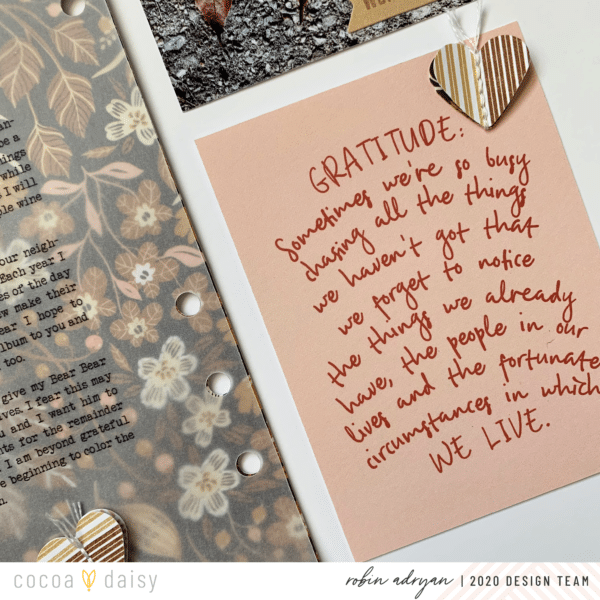 an-
be a
things
while
I will
ple wine
our neigh-
Each year I
es of the day
w make their
ear I hope to
album to you and
too.
give my Bear Bear
ives. I fear this may
u and I want him to
nts for the remainder
I am beyond grateful
e beginning to color the
n.
GRATITUDE:
Sometimes we're so busy
chasing all the things
we haven't got that
we forget to notice
the things we already
have, the people in our
lives and the fortunate
circumstances in which
WE LIVE.
cocoa daisy
robin adryan | 2020 DESIGN TEAM